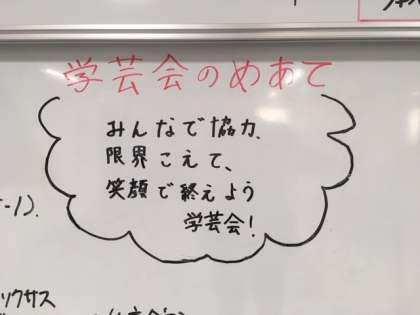 学芸会のめあて
みんなで協力、
限界こえて、
笑顔で終えよう
学芸会!
-1).
ックサス